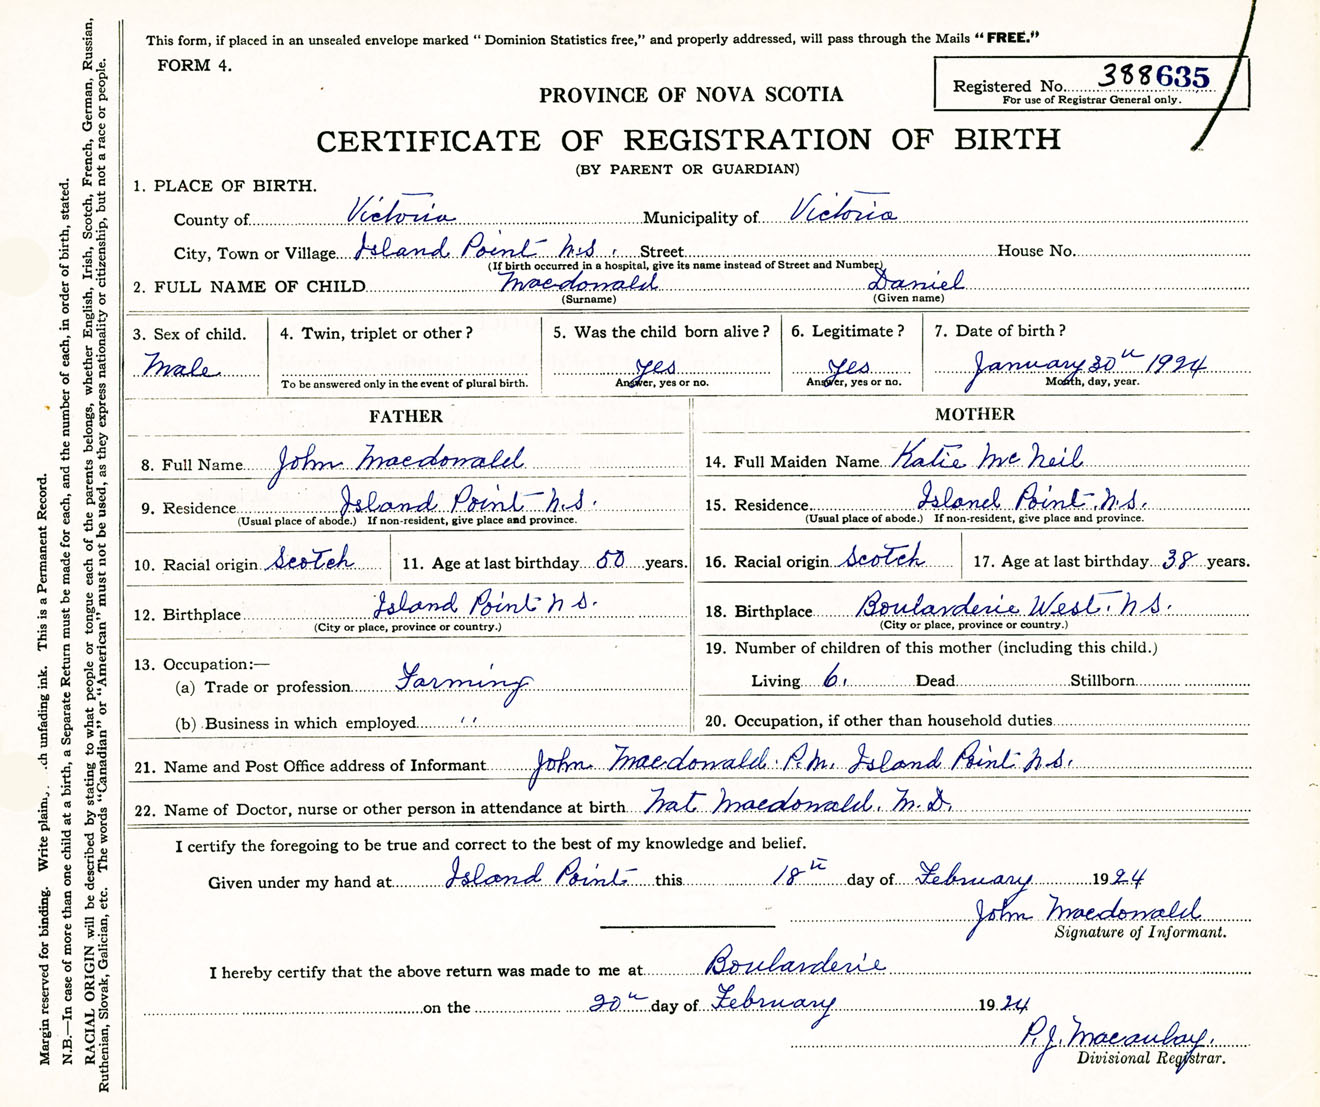 This form, if placed in an unsealed envelope marked “ Dominion Statistics free,” and properly addressed, will pass through the Mails “ FREE.”
FORM 4.
Registered No. 388635
For use of Registrar General only.
PROVINCE OF NOVA SCOTIA
CERTIFICATE OF REGISTRATION OF BIRTH
(BY PARENT OR GUARDIAN)
1. PLACE OF BIRTH.
County of Victoria Municipality of Victoria
City, Town or Village Island Point N.S. Street House No.
(If birth occurred in a hospital, give its name instead of Street and Number)
2. FULL NAME OF CHILD Macdonald Daniel
(Surname) (Given name)
3. Sex of child. 4. Twin, triplet or other ? 5. Was the child born alive ? 6. Legitimate ? 7. Date of birth ?
Male Yes Yes January 30th 1924
To be answered only in the event of plural birth. Answer, yes or no. Answer, yes or no. Month, day, year.
FATHER MOTHER
8. Full Name John Macdonald 14. Full Maiden Name Katie McNeil
9. Residence Island Point N.S. 15. Residence Island Point. N.S.
(Usual place of abode.) If non-resident, give place and province. (Usual place of abode.) If non-resident, give place and province.
10. Racial origin Scotch 11. Age at last birthday 50 years. 16. Racial origin Scotch 17. Age at last birthday 38 years.
12. Birthplace Island Point N S. 18. Birthplace Boularderie West. N S.
(City or place, province or country.) (City or place, province or country.)
13. Occupation:— 19. Number of children of this mother (including this child.)
(a) Trade or profession Farming Living 6. Dead Stillborn
(b) Business in which employed ‘‘ 20. Occupation, if other than household duties
21. Name and Post Office address of Informant John Macdonald. P.M. Island Point N.S.
22. Name of Doctor, nurse or other person in attendance at birth Nat Macdonald. M.D.
I certify the foregoing to be true and correct to the best of my knowledge and belief.
Given under my hand at Island Point this 18th day of February 1924
John Macdonald
Signature of Informant.
I hereby certify that the above return was made to me at Boularderie
on the 20th day of February 1924
P.J. Macaulay.
Divisional Registrar.
Margin reserved for binding. Write plain ch unfading ink. This is a Permanent Record.
N.B.—In case of more than one child at a birth, a Separate Return must be made for each, and the number of each, in order of birth, stated.
RACIAL ORIGIN will be described by stating to what people or tongue each of the parents belongs, whether English, Irish, Scotch, French, German, Russian,
Ruthenian, Slovak, Galician, etc. The words “Canadian” or “American” must not be used, as they express nationality or citizenship, but not a race or people.